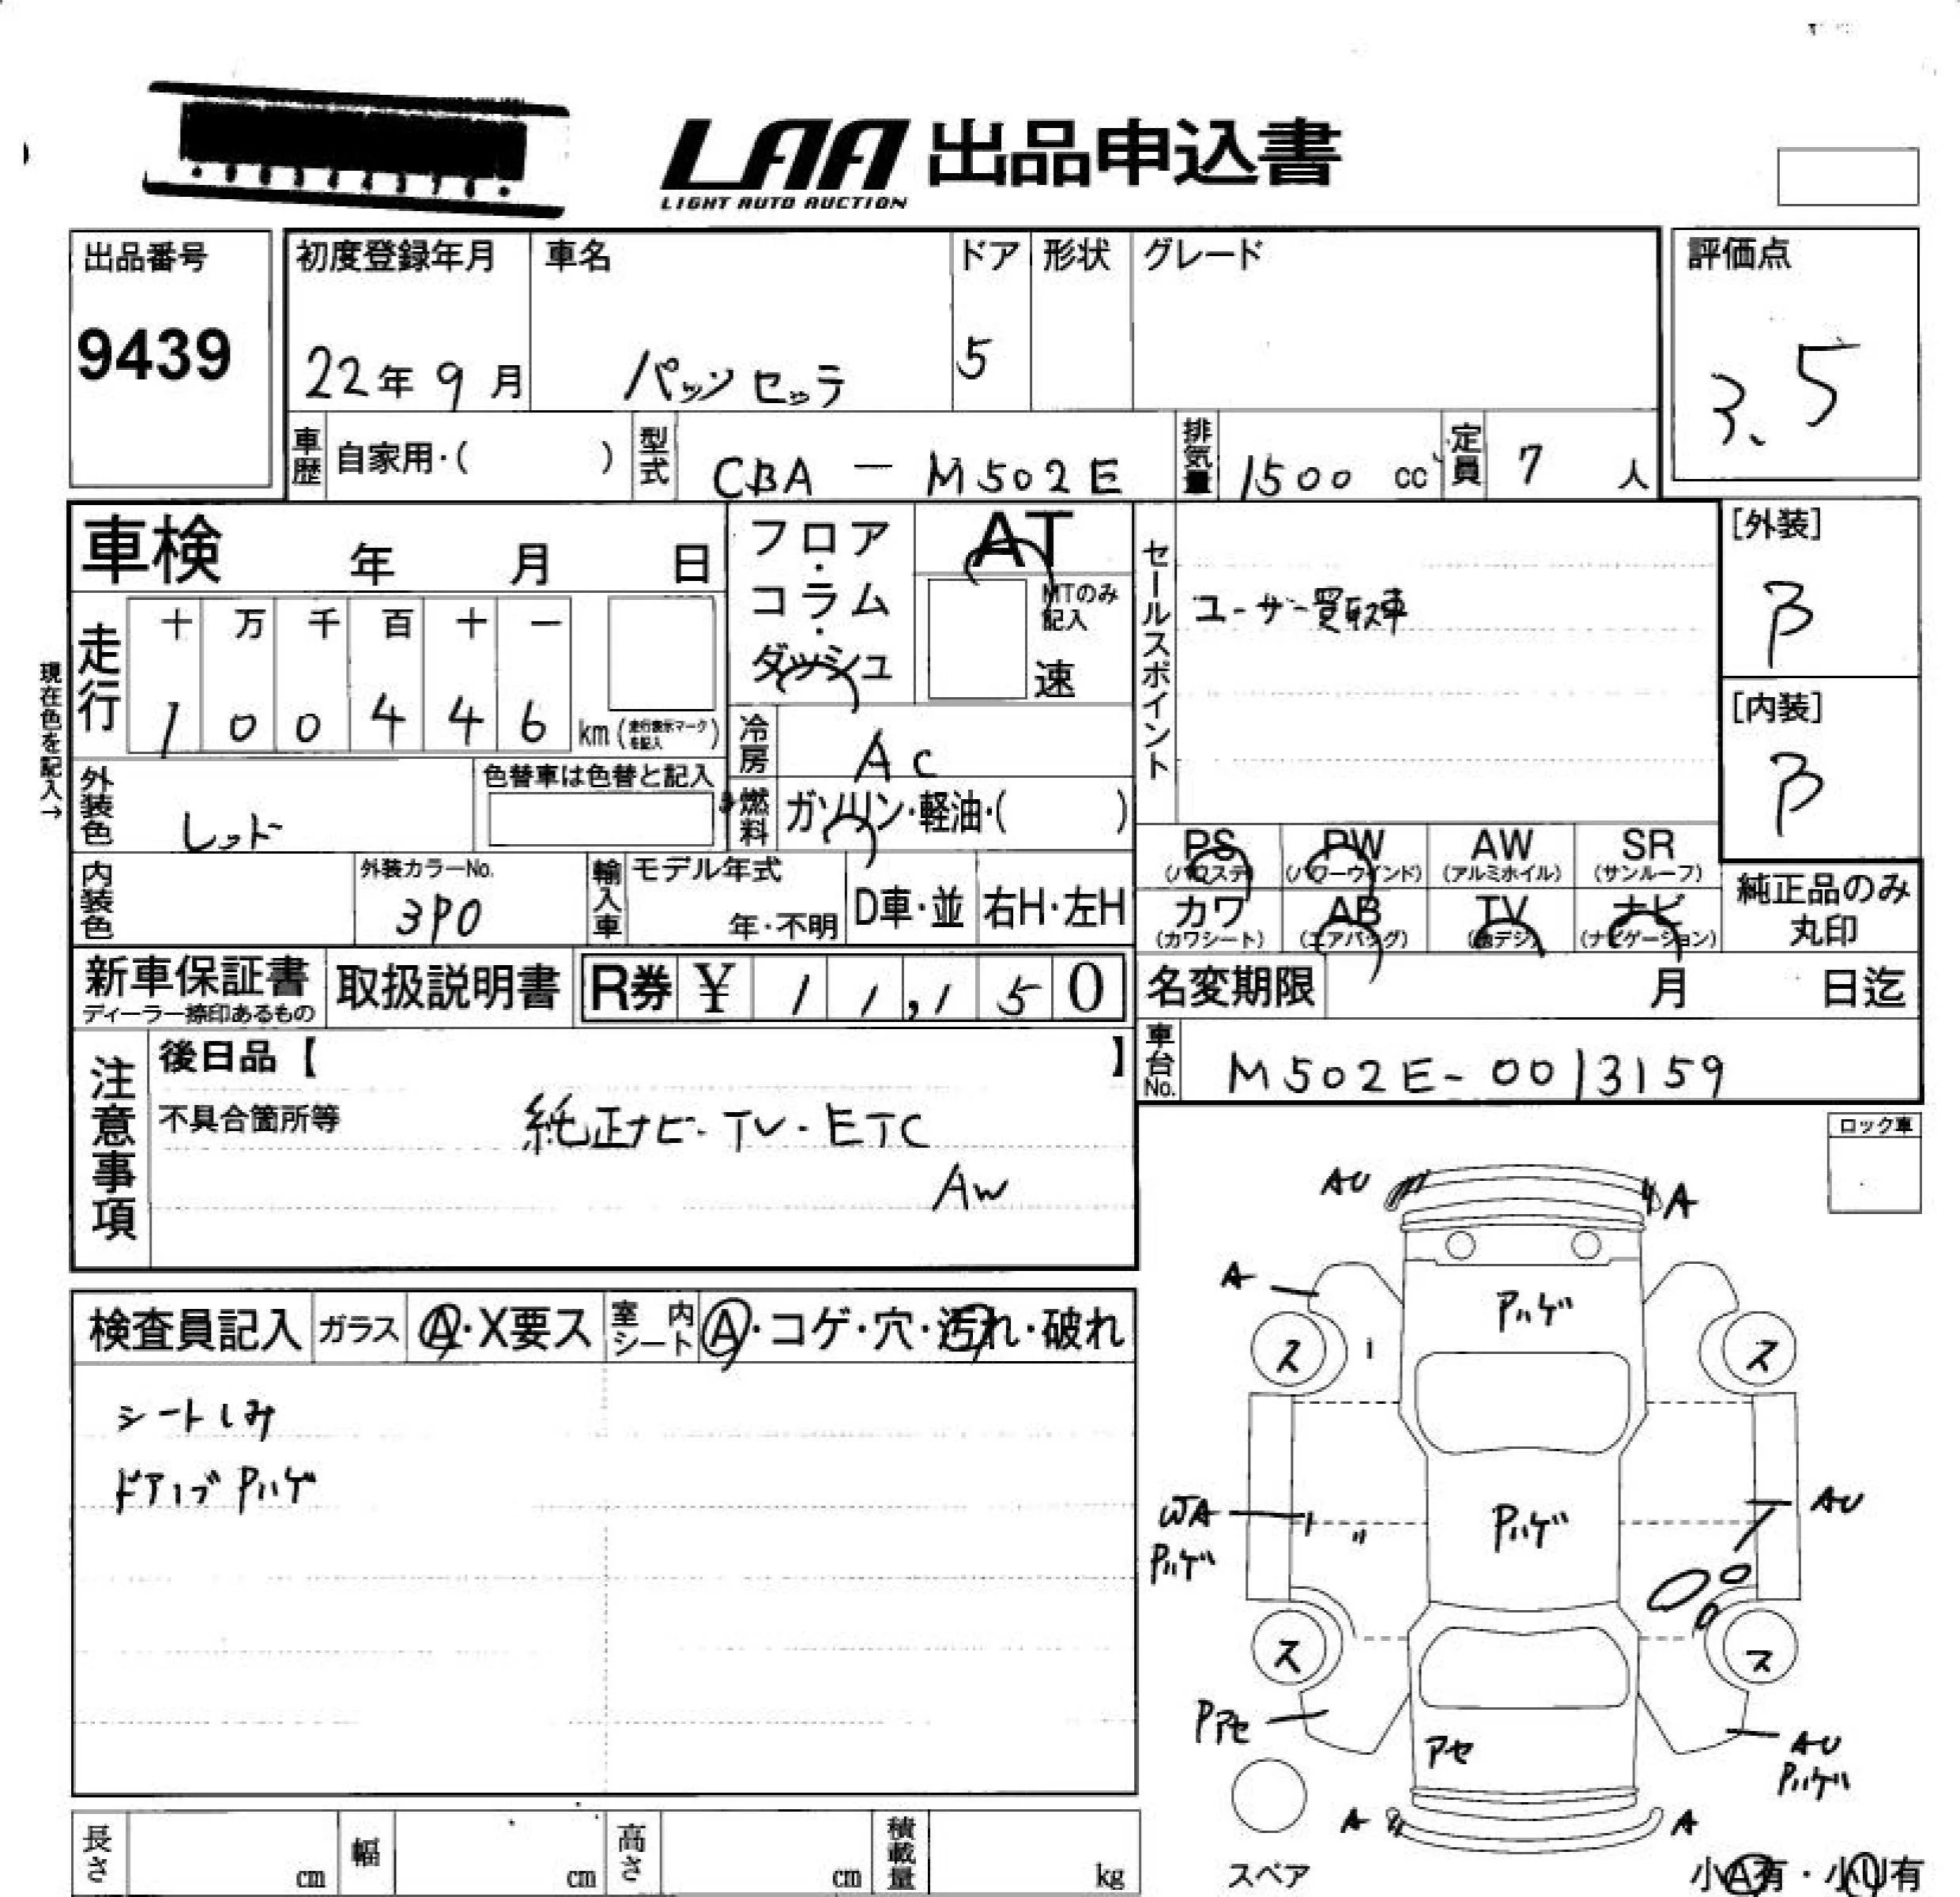 LAA 出品申込書
LIGHT AUTO AUCTION
出品番号
9439
初度登録年月
22年 9月
車名
パッソ セッテ
ドア
5
形状
グレード
評価点
3.5
車歴 自家用・( )
型式 CBA - M502E
排気量 1500 cc
定員 7 人
車検 年 月 日
フロア・コラム・ダッシュ
AT
MTのみ記入
速
セールスポイント
ユーザー買取車
[外装]
B
[内装]
B
現在色を記入→
走行
十 万 千 百 十 一
1 0 0 4 4 6 km (走行表示マークを記入)
冷房 AC
外装色 レッド
色替車は色替と記入
燃料 ガソリン・軽油・( )
内装色
外装カラーNo.
3P0
輸入車 モデル年式
年・不明
D車・並
右H・左H
PS (パワステ)
PW (パワーウインド)
AW (アルミホイル)
SR (サンルーフ)
カワ (カワシート)
AB (エアバッグ)
TV (地デジ)
ナビ (ナビゲーション)
純正品のみ丸印
新車保証書
ディーラー捺印あるもの
取扱説明書
R券 ¥ 1 1,1 5 0
名変期限 月 日迄
車台No. M502E-0013159
注意事項
後日品【 】
不具合箇所等
純正ナビ・TV・ETC
AW
ロック車
検査員記入
ガラス A・X要ス
室内シート A・コゲ・穴・汚れ・破れ
シートしみ
ドアノブPハゲ
AU
A
A
Pハゲ
ス
ス
WA
Pハゲ
〃
Pハゲ
AU
ス
ス
Pアセ
アセ
AU
Pハゲ
A
A
スペア
小A有・小U有
長さ cm
幅 cm
高さ cm
積載量 kg